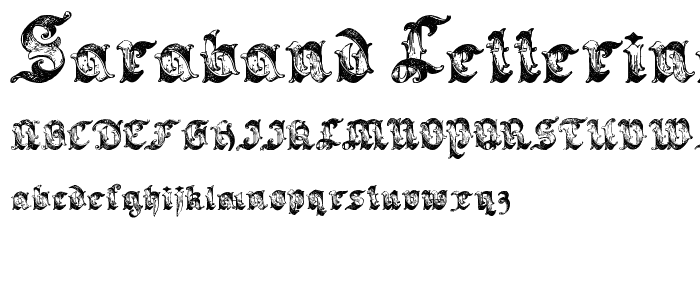 Saraband Letterin
ABCDEFGHIJKLMNOPQRSTUVW
abcdefghijklmnopqrstuvwxyz